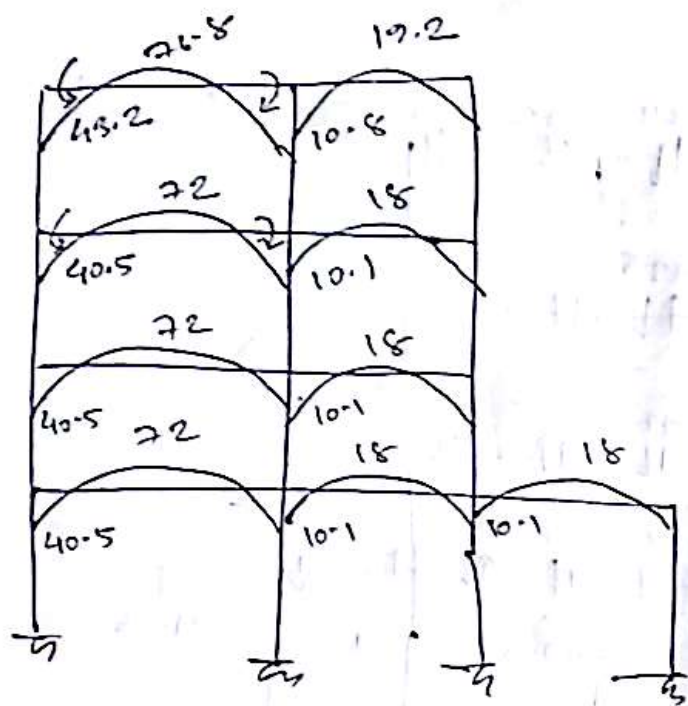 76.8 19.2
43.2 10.8
72 18
40.5 10.1
72 18
40.5 10.1
72 18 18
40.5 10.1 10.1